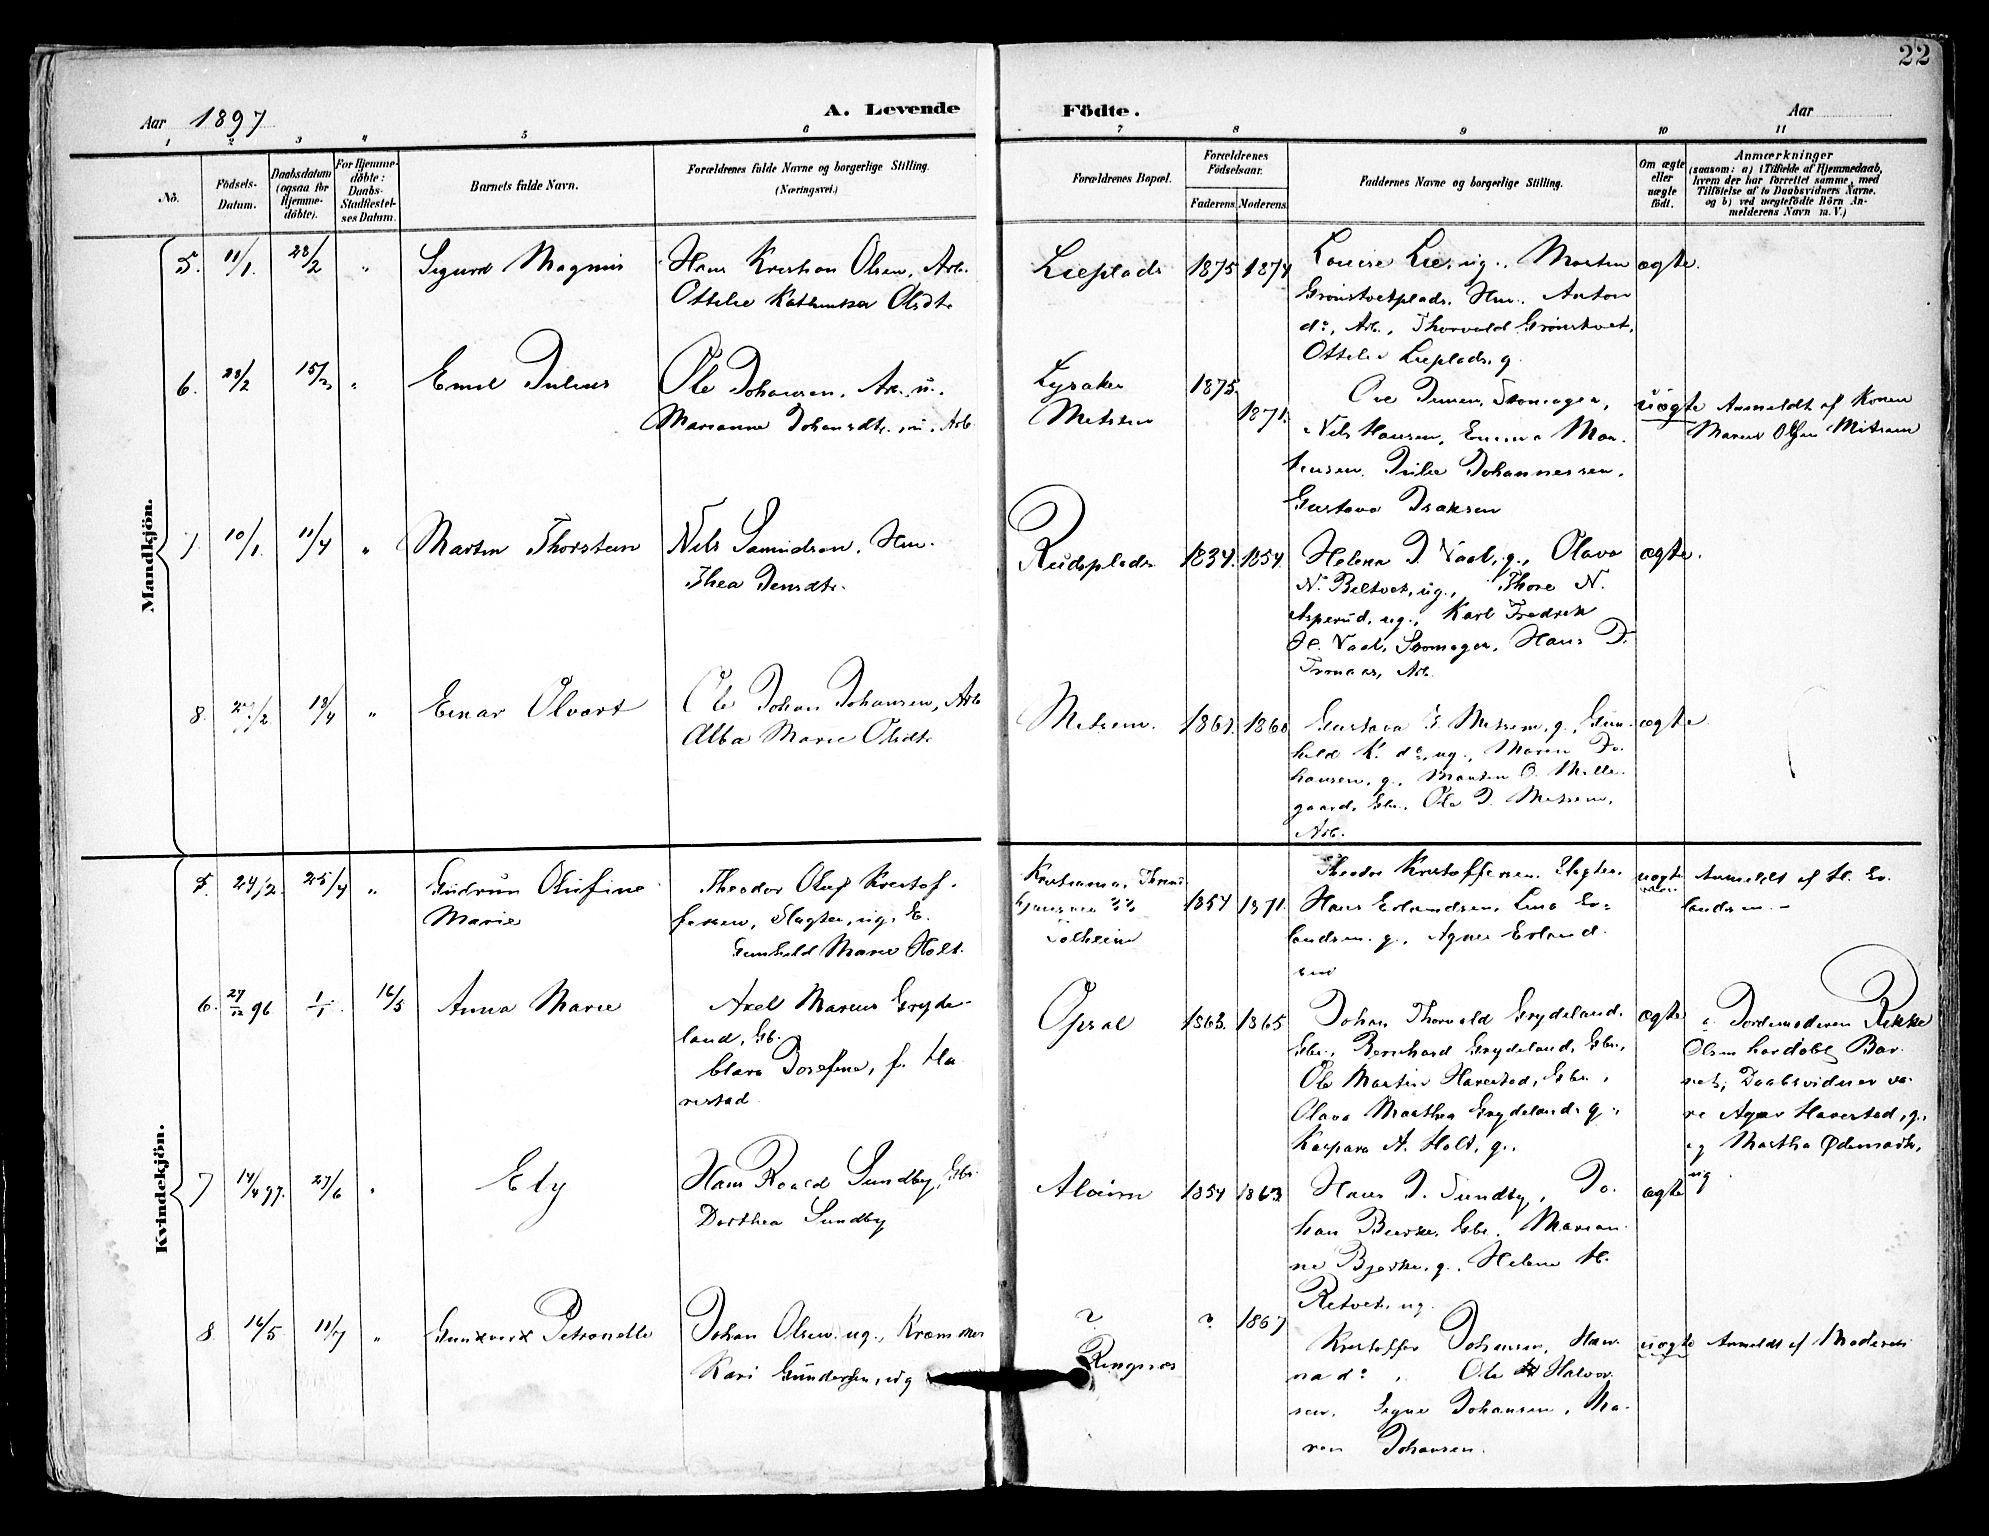 22
Aar 1897
A. Levende
Födte.
Aar
1 2 3 " 5 6 7 8 9 10 11
No.
Födsels-Datum.
Daabsdatum (ogsaa for Hjemme-döbte).
For Hjemme-döbte: Daabs-Stadfæstel-ses Datum.
Barnets fulde Navn.
Forældrenes fulde Navne og borgerlige Stilling.
(Næringsvei.)
Forældrenes Bopæl.
Forældrenes Födselsaar.
Faderens. Moderens.
Faddernes Navne og borgerlige Stilling.
Om ægte eller uægte födt.
Anmærkninger
(saasom: a) i Tilfælde af Hjemmedaab,
hvem der har forrettet samme, med
Tilföielse af to Daabsvidners Navne.
og b) ved uægtefödte Börn An-
melderens Navn m. V.)
Mandkjön.
5. 11/1. 28/2 " Sigurd Magnus
Hans Kristian Olsen, Arb.
Ottilie Kathinka Olsdtr.
Lieplads 1875 1874
Louise Lie, ug., Morten
Grönstvetplads, Hm. Anton
do, Arb., Thorvald Grönstvet,
Ottilie Lieplads, g.
ægte.
6. 28/2 "
Emil Julius
Ole Johansen, Arb. u.
Marianne Johansdtr., u. Arb.
Lysaker 1875
Metsem 1871.
Ove Jensen, Skomager,
Nils Hansen, Emma
Julie Johannessen,
Gustava Isaksen
uægte
Anmeldt af Konen
Maren Olsen Mitsem
7. 10/1. 11/4 " Martin Thorstein
Nils Samuelsen, Hm.
Thea Jensdtr.
Rudsplads 1834. 1854.
Helena J. Vaal, g., Olava
N. Beltvet, ug., Thore N.
Asperud, ug., Karl Fredrik
H. Vaal, Skomager, Hans D.
Tronaas, Arb.
ægte.
8. 27/2 18/4 " Einar Olvart
Ole Johan Johansen, Arb
Alba Marie Olsdtr
Metsem. 1861. 1860
Gustava G. Metsem, g., Gun-
hild K. do, ug., Maren Jo-
hansen, g., Morten O. Mille-
gaard, Gbr., Ole J. Metsem,
Arb.
ægte
Kvindekjön.
5. 24/2. 25/4 " Gudrun Olufine
Marie
Theodor Oluf Kristof-
fersen, Slagter, ug. E.
Gunhild Marie Holt.
Kristiania,
Solheim
1854 1871.
Theodor Kristoffersen, Slagter,
Hans Erlandsen, Lina Er-
landsen, g., Agnes Erland-
sen
uægte
Anmeldt af H. Er-
landsen. -
6. 27/12 96 1/1. 16/5 Anna Marie
Axel Marius Gryde-
land, Gb.
Clara Josefine, f. Ha
restad.
Opsal 1863. 1865
Johan Thorvald Grydeland,
Gbr., Bernhard Grydeland, Gbr.,
Ole Martin Harestad, Gbr.,
Olava Marthea Grydeland, g.,
Kaspara A. Holt, g.,
ægte
a. Jordemoderen Rikke
Olsen har döbt Bar-
net; Daabsvidner va-
re Agnes Harestad, g.
og Martha Ødemark,
ug
7 14/4 97. 27/6 " Ely
Hans Roald Sundby, Gbr.
Dorthea Sundby
Alörn 1854 1863
Hans J. Sundby, Jo-
han Bjerke, Gbr., Marian-
ne Bjerke, g., Helene H.
Retvet, ug.
ægte
8 16/5 11/7 " Petronelle
Johan Olsen, ug., Kræmmer
Kari Gundersen, ug
? ? 1867
Ringnæs
Kristoffer Johansen, Han-
na do, Ole Halvor-
sen, Signe Johansen, Ma-
ren Johansen.
uægte
Anmeldt af Moderen